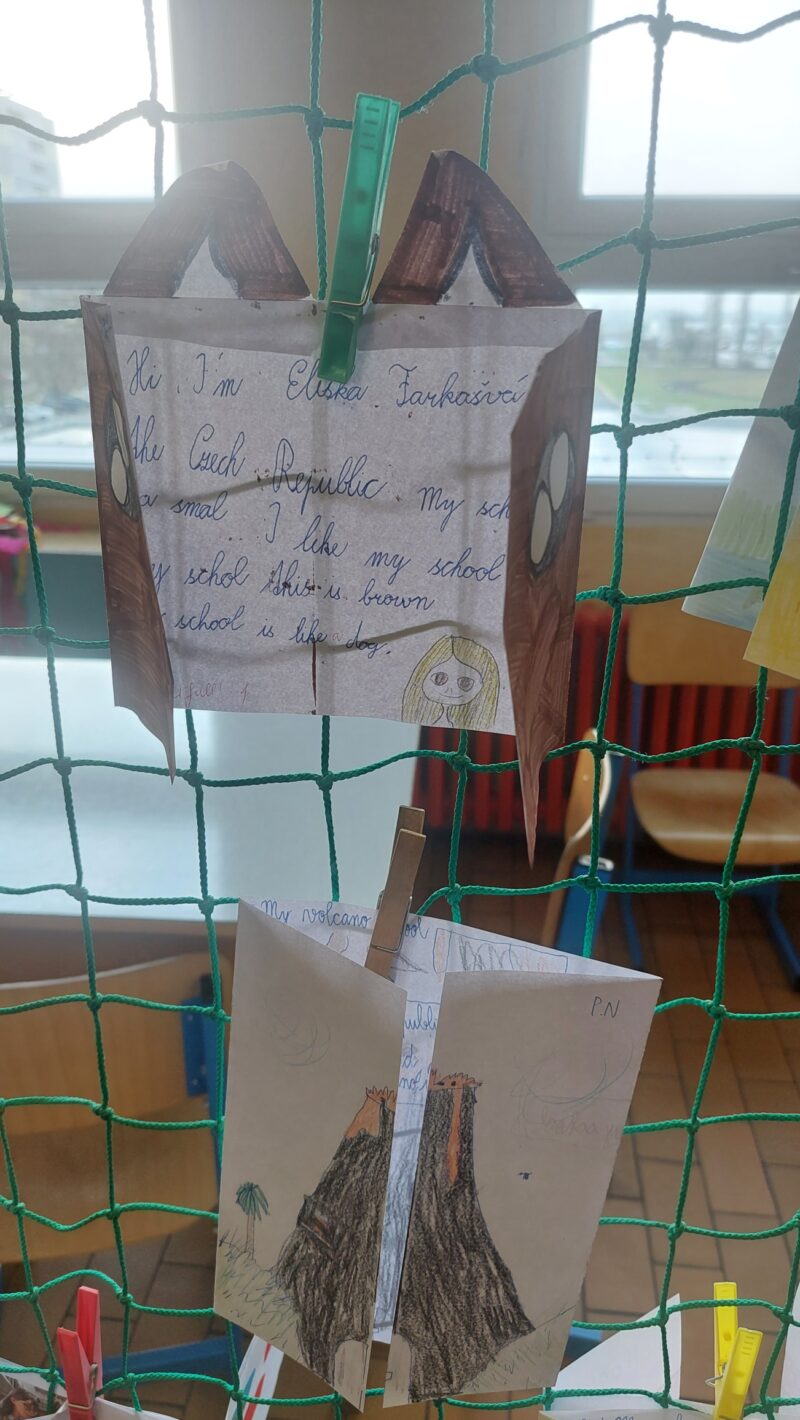 Hi I'm Eliška Farkašvá
the Czech Republic. My sch
a smal I like my school
y schol this is brown
school is like a dog.
My volcano ool
P.N
ublic